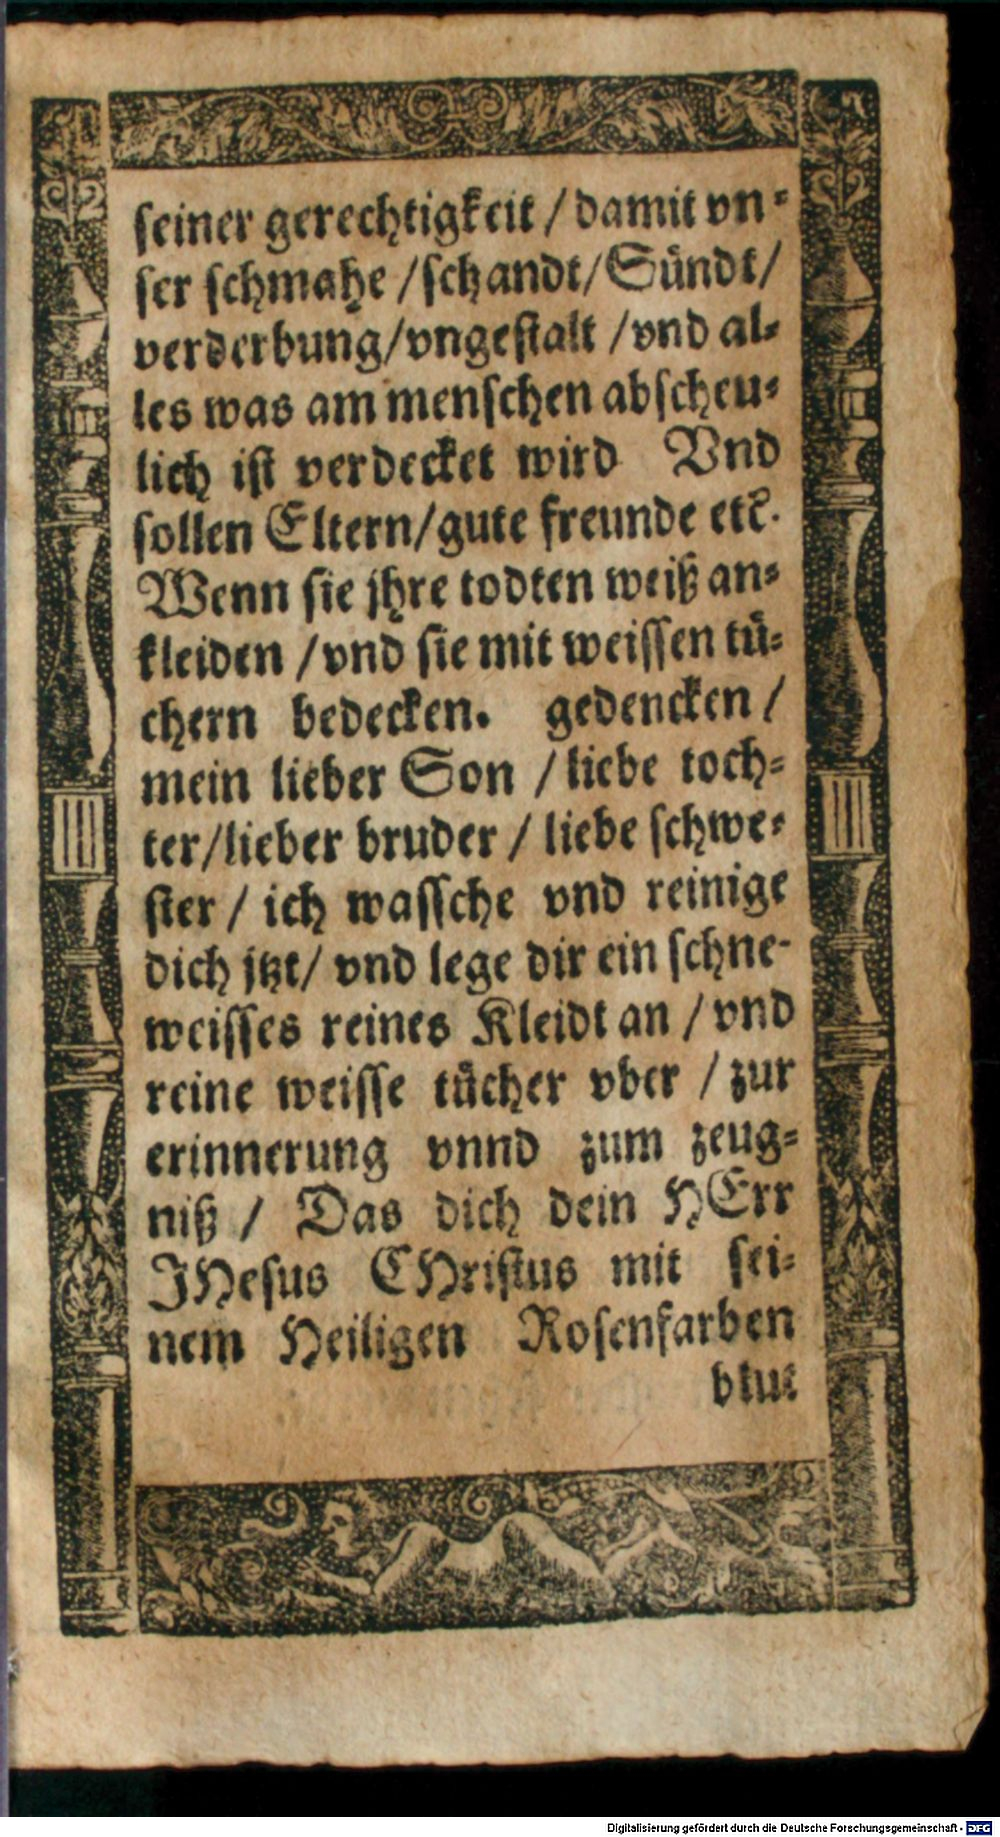 seiner gerechtigkeit / damit vn-
ser schmahe / schandt / Sündt /
verderbung / vngestalt / vnd al-
les was am menschen abscheu-
lich ist verdecket wird Vnd
sollen Eltern / gute freunde etc.
Wenn sie jhre todten weiß an-
kleiden / vnd sie mit weissen tü-
chern bedecken. gedencken /
mein lieber Son / liebe toch-
ter / lieber bruder / liebe schwe-
ster / ich wassche vnd reinige
dich jtzt / vnd lege dir ein schne-
weisses reines Kleidt an / vnd
reine weisse tücher vber / zur
erinnerung vnnd zum zeug-
niß / Das dich dein HErr
JHesus CHristus mit sei-
nem Heiligen Rosenfarben
blut
Digitalisierung gefördert durch die Deutsche Forschungsgemeinschaft - DFG